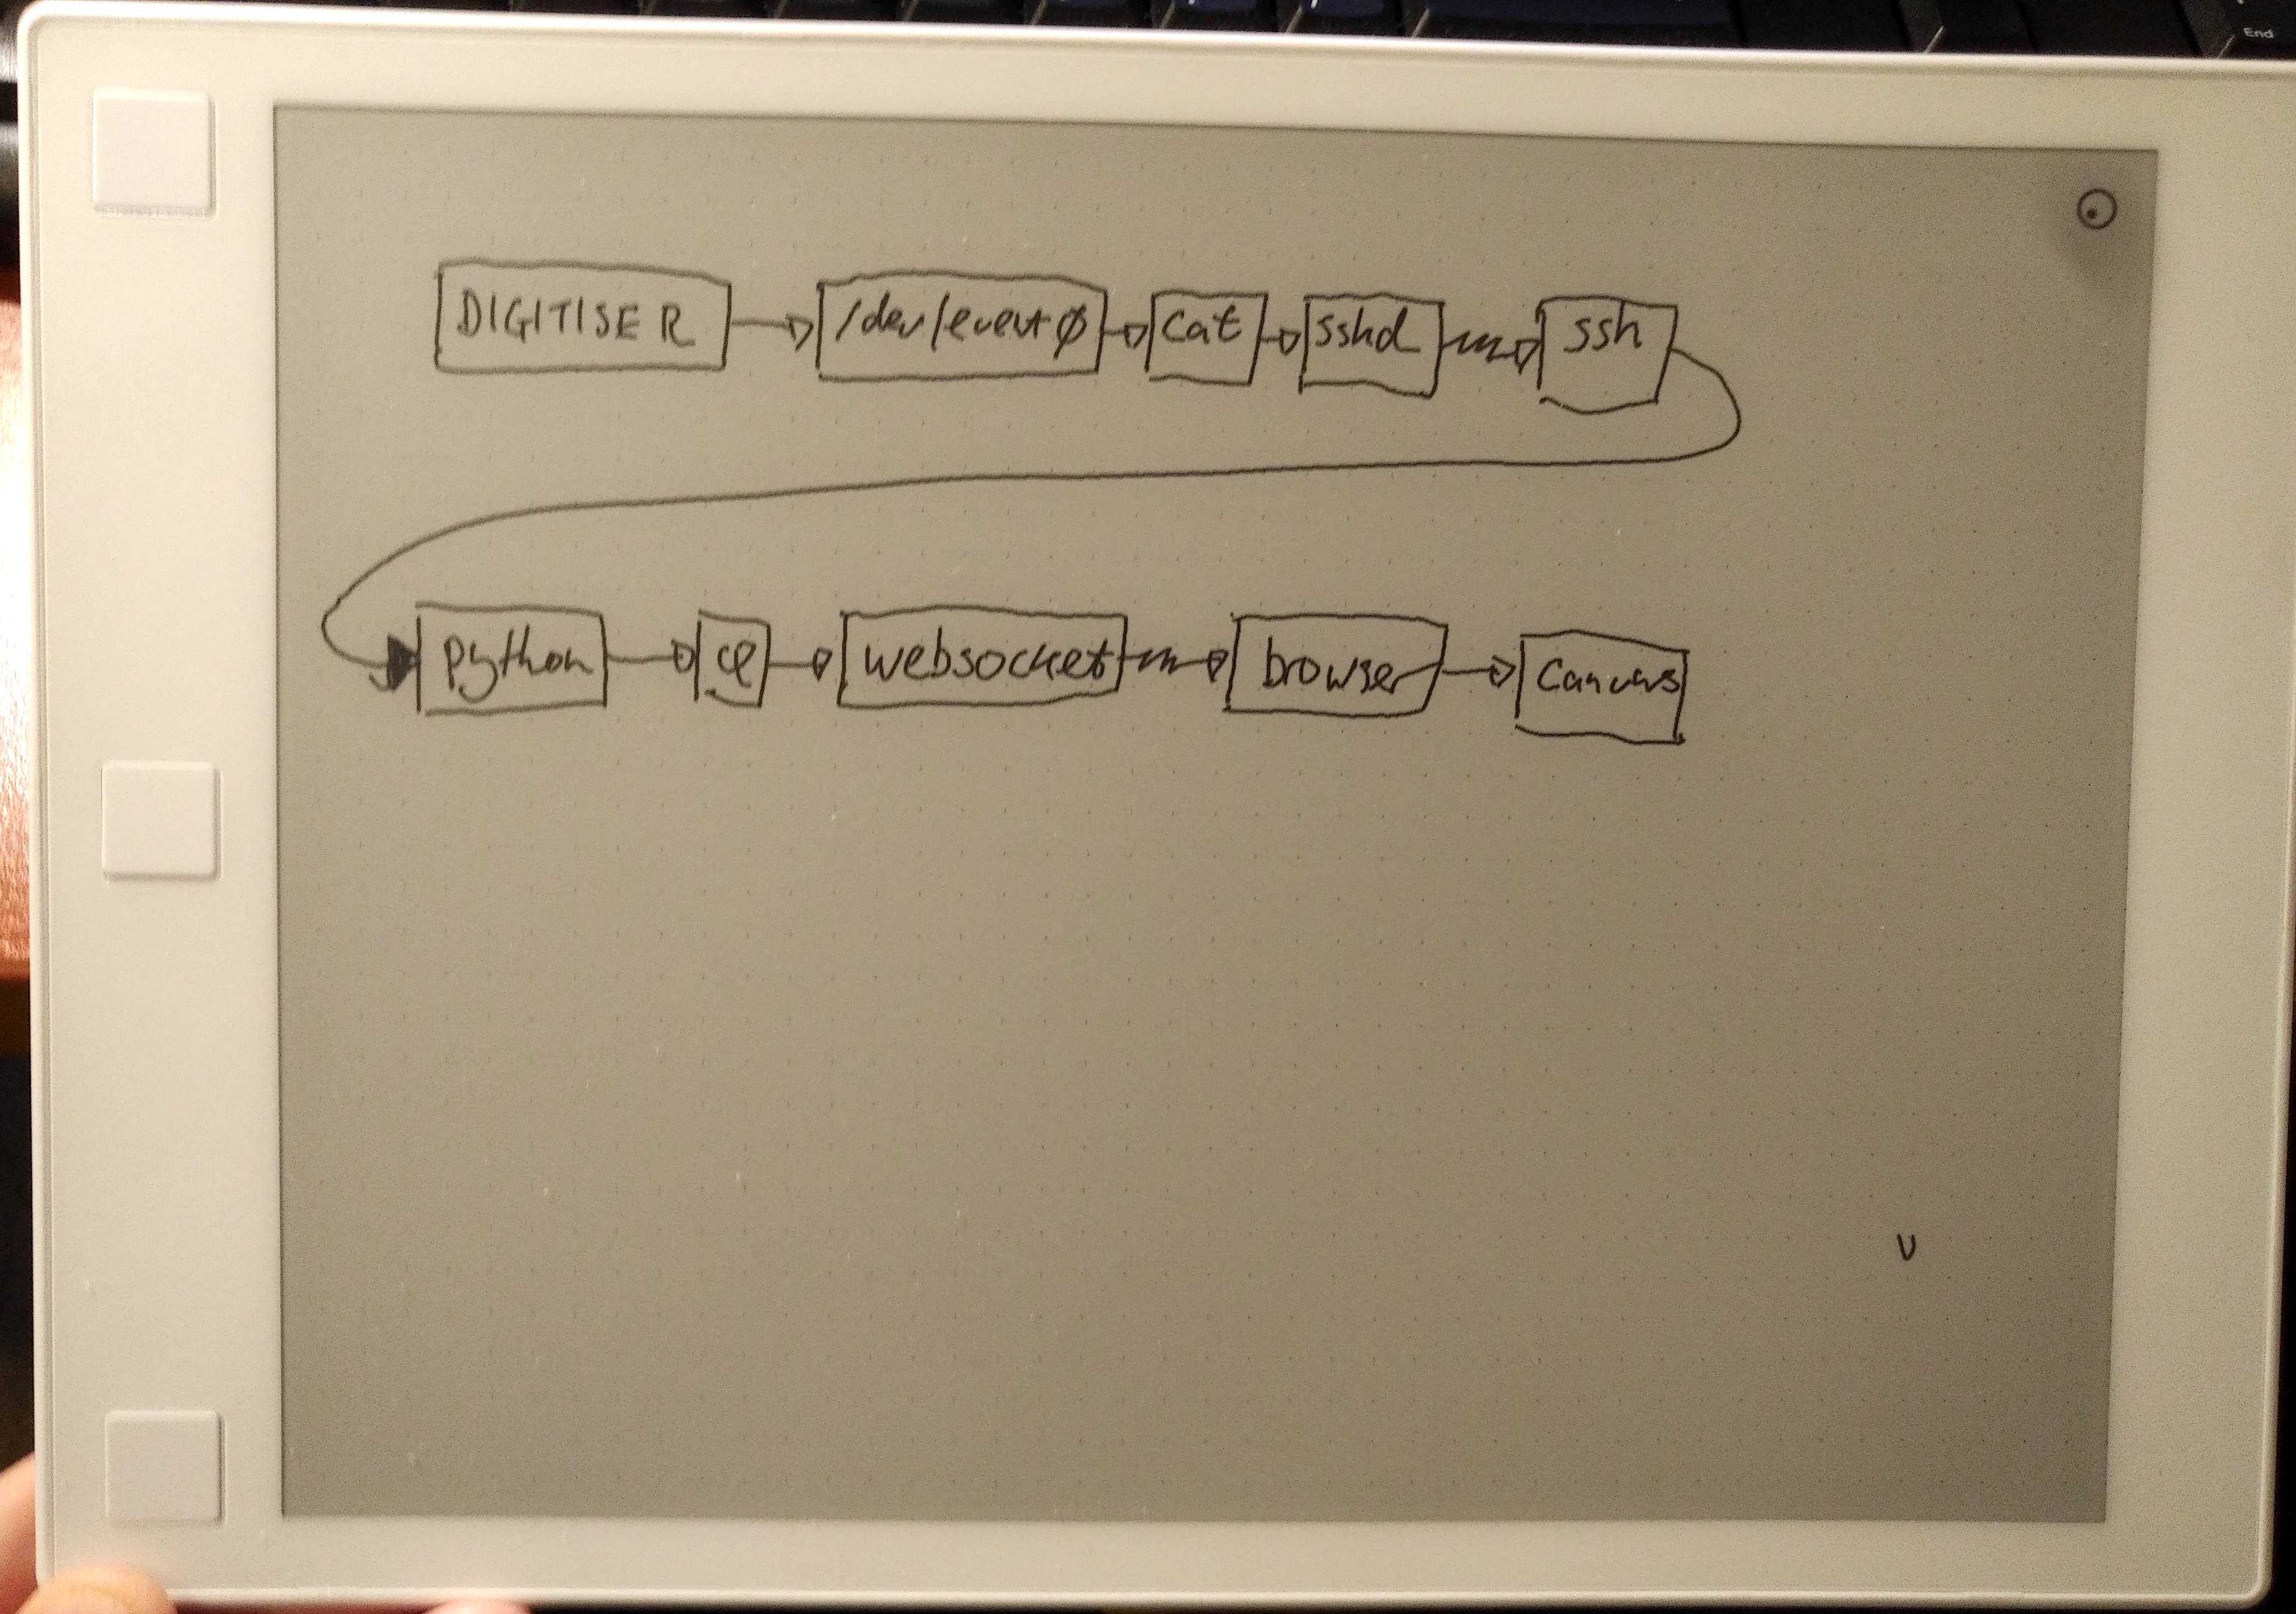 End
DIGITISER /dev/event0 cat sshd ssh
python websocket browser canvas